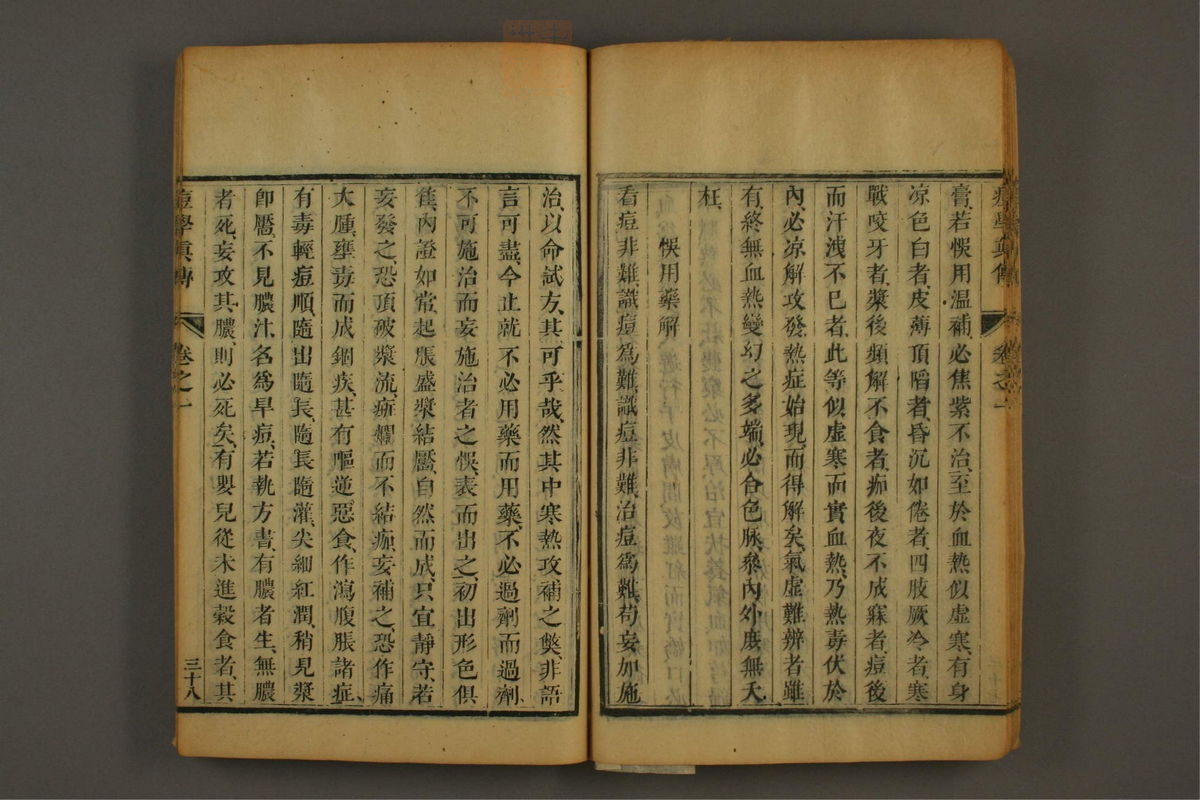 膏若悞用温補必焦紫不治至於血熱似虛寒有身
凉色白者皮薄頂䧟者昏沉如倦者四肢厥冷者寒
戰咬牙者漿後頻解不食者痂後夜不成寐者痘後
而汗洩不已者此等似虛寒而實血熱乃熱毒伏於
內必凉解攻發熱症始現而得解矣氣虛難辨者雖
有終無血熱變幻之多端必合色脉叅內外庶無夭
枉
悞用藥解
看痘非難識痘爲難識痘非難治痘爲難茍妄加施
治以命試方其可乎哉然其中寒熱攻補之獘非語
言可盡今止就不必用藥而用藥不必過劑而過劑
不可施治而妄施治者之悞表而出之初出形色俱
佳內證如常起脹盛漿結靨自然而成只宜靜守若
妄發之恐頂破漿流痂爛而不結痂妄補之恐作痛
大腫壅毒而成錮疾甚有嘔逆惡食作瀉腹脹諸症
有毒輕痘順隨出隨長隨長隨灌尖細紅潤稍見漿
卽靨不見膿汁名爲旱痘若執方書有膿者生無膿
者死妄攻其膿則必死矣有嬰兒從未進穀食者其
痘學真傳
卷之一
三十八